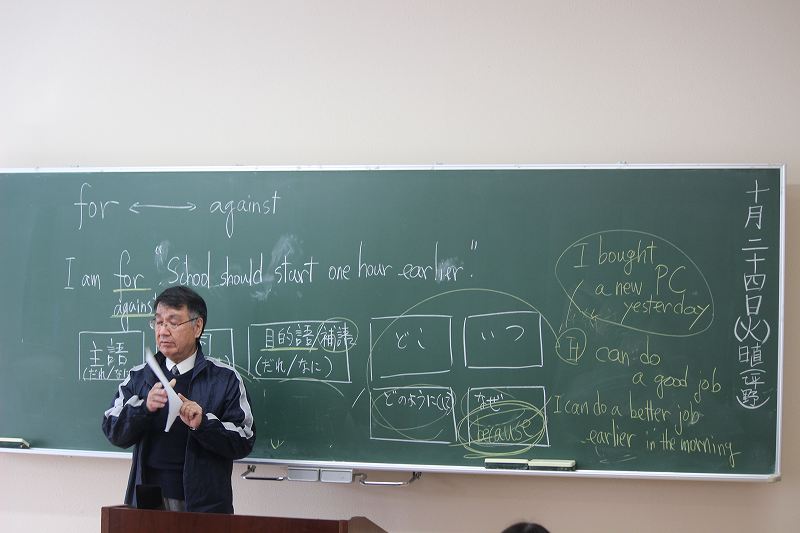 for ⟷ against
I am for "School should start one hour earlier."
against
主語
(だれ/なに)
目的語/補語
(だれ/なに)
どこ
いつ
どのように(に)
なぜ
because
I bought
a new PC
yesterday
It can do
a good job
I can do a better job
earlier in the morning
十月二十四日(火)